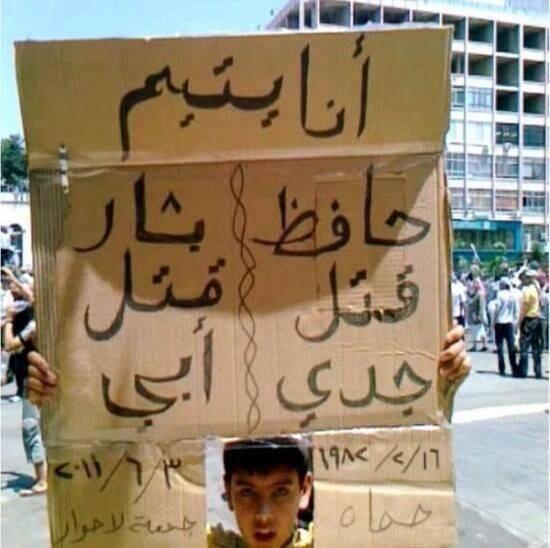 أنا يتيم
حافظ
قتل
جدي
بشار
قتل
أبي
١٩٨٢ /٢/١٦
حماه
٢٠١١/٦/٣
جمعة لا حوار